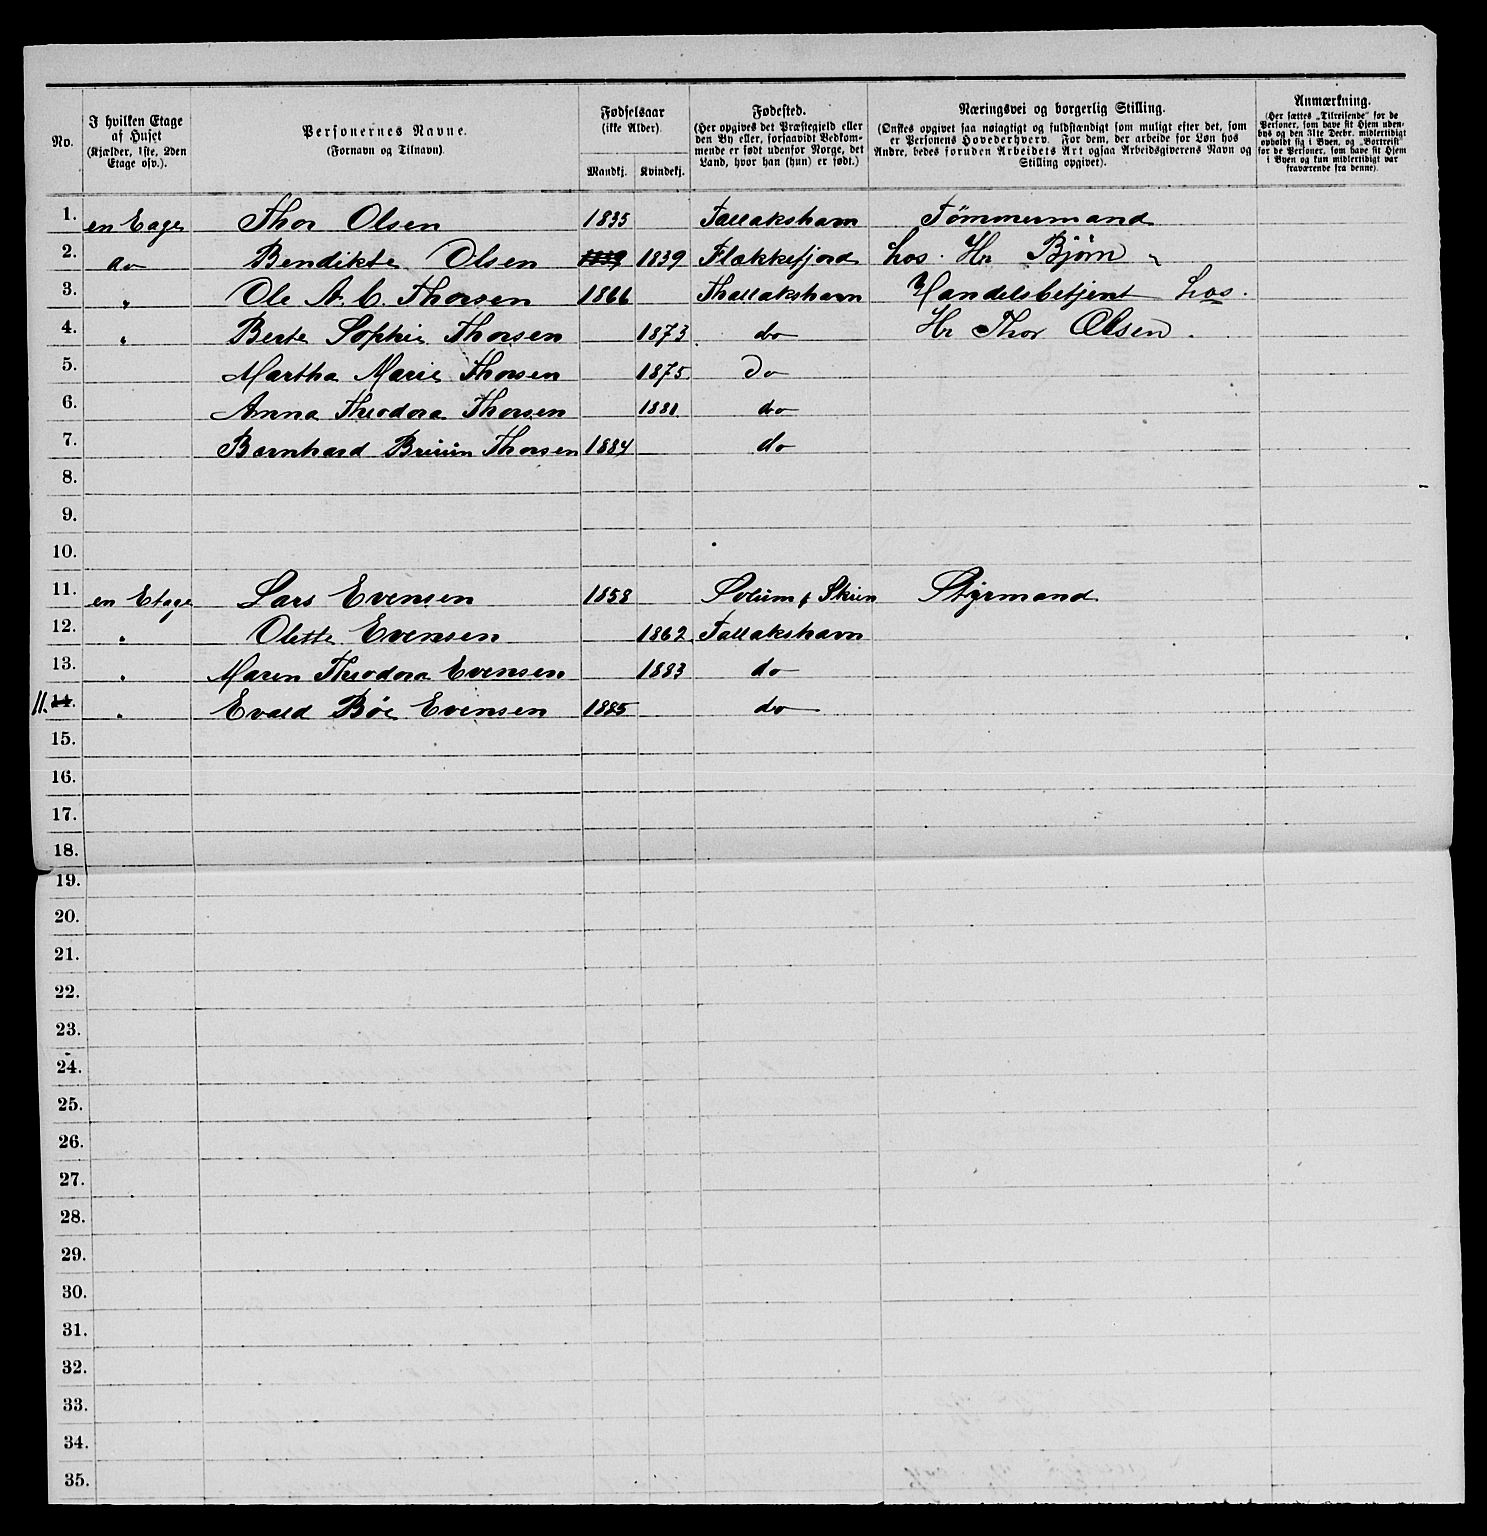 No.	I hvilken Etage af Huset (Kjælder, 1ste, 2den Etage osv.).	Personernes Navne. (Fornavn og Tilnavn).	Fødselsaar (ikke Alder) Mandkj.	Kvindekj.	Fødested. (Her opgives det Præstegjeld eller den By eller, forsaavidt Vedkommende er født udenfor Norge, det Land, hvor han (hun) er født.)	Næringsvei og borgerlig Stilling. (Ønskes opgivet saa nøiagtigt og fuldstændigt som muligt efter det, som er Personens Hovederhverv. For dem, der arbeide for Løn hos Andre, bedes foruden Arbeidets Art ogsaa Arbeidsgiverens Navn og Stilling opgivet).	Anmærkning. (Her sættes „Tilreisende" for de Personer, som have sit Hjem udenbys og den 31te Decbr. midlertidigt opholdt sig i Byen, og „Bortreist" for de Personer, som have sit Hjem i Byen og kun midlertidigt var fraværende fra denne).
1. en Eage Thor Olsen 1835 Tallakshavn Tømmermand
2. do Bendikte Olsen 1839 Flækkefjord hos. Hr Bjørn "
3. " Ole A. C. Thorsen 1866 Thallakshavn Handelsbetjent hos.
4. " Berte Sophie Thorsen 1873 do Hr Thor Olsen.
5. Martha Marie Thorsen 1875 Do
6. Anna Theodora Thorsen 1881 do
7. Bernhard Bruun Thorsen 1884 do
8.
9.
10.
11. en Etage Lars Evensen 1858 Solum p Skien Styrmand
12. " Olette Evensen 1862 Tallakshavn
13. " Maren Theodora Evensen 1883 do
11. 14. " Evald Bøe Evensen 1885 do
15.
16.
17.
18.
19.
20.
21.
22.
23.
24.
25.
26.
27.
28.
29.
30.
31.
32.
33.
34.
35.